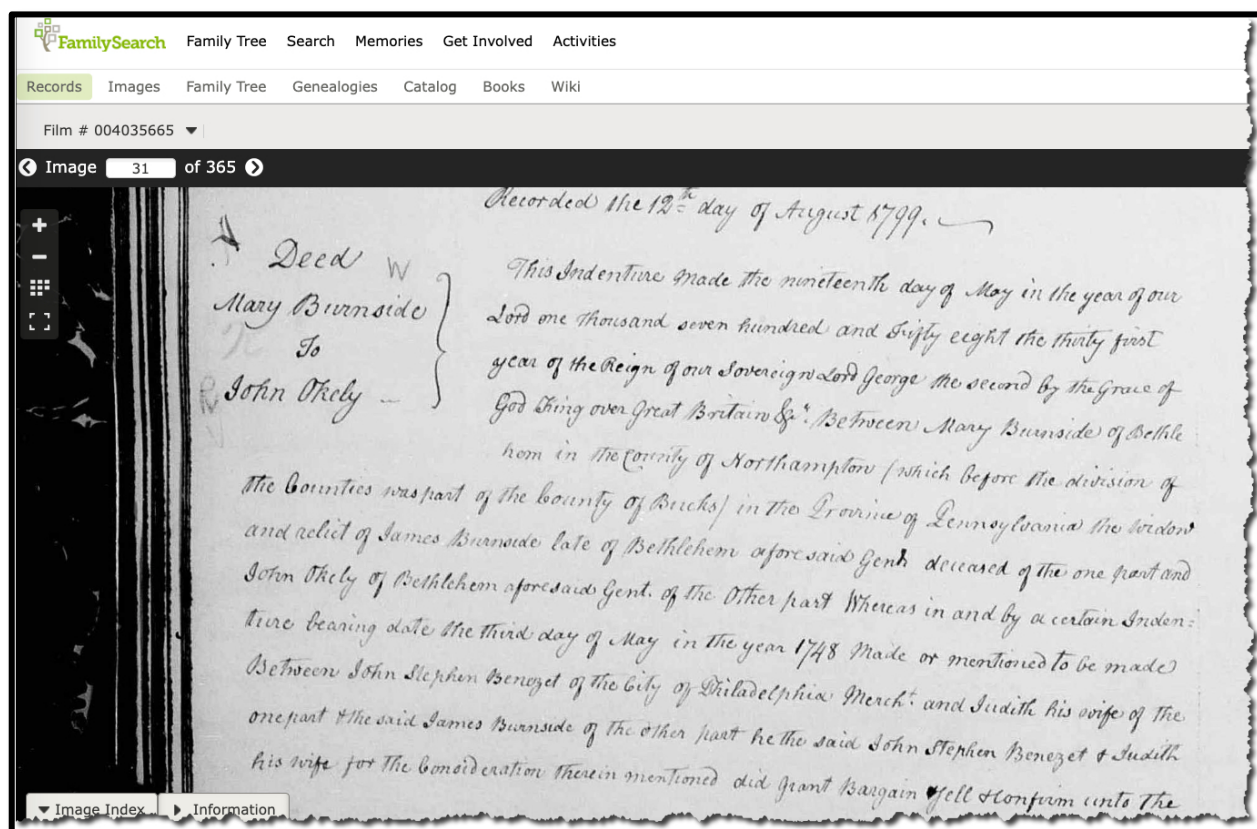 FamilySearch Family Tree Search Memories Get Involved Activities
Records Images Family Tree Genealogies Catalog Books Wiki
Film # 004035665
Image 31 of 365
Recorded the 12th day of August 1799.
Deed W
Mary Burnside
To
John Okely
This Indenture made the nineteenth day of May in the year of our
Lord one thousand seven hundred and Fifty eight the thirty first
year of the Reign of our Sovereign Lord George the second by the Grace of
God King over Great Britain &ca. Between Mary Burnside of Bethle
hem in the County of Northampton (which before the division of
the Counties was part of the County of Bucks) in the Province of Pennsylvania the widow
and relict of James Burnside late of Bethlehem aforesaid Gent deceased of the one part and
John Okely of Bethlehem aforesaid Gent. of the Other part Whereas in and by a certain Inden=
ture bearing date the third day of May in the year 1748 Made or mentioned to be made
Between John Stephen Benezet of the City of Philadelphia Mercht. and Judith his wife of the
one part & the said James Burnside of the other part he the said John Stephen Benezet & Judith
his wife for the Consideration therein mentioned did grant Bargain Sell & Confirm unto the
Image Index Information